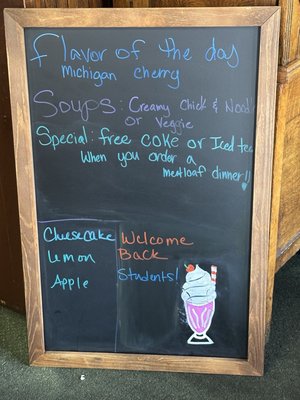 Flavor of the day
Michigan cherry
Soups: Creamy Chick & Nood
or Veggie
Special: free coke or Iced tea
When you order a
meatloaf dinner!!
Cheesecake
Lemon
Apple
Welcome
Back
Students!